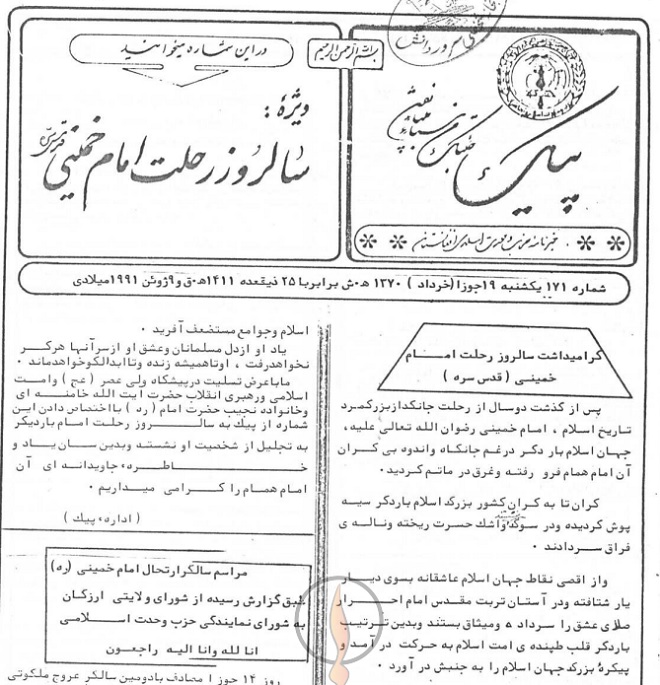 پیک
خبرنامه حزب وحدت اسلامی افغانستان
بسم الله الرحمن الرحیم
در این شماره میخوانید
ویژه :
سالروز رحلت امام خمینی
شماره ۱۷۱ یکشنبه ۱۹جوزا (خرداد ) ۱۳۷۰ ه‍.ش برابر با ۲۵ ذیقعده ۱۴۱۱ه‍.ق و ۹ ژوئن ۱۹۹۱ میلادی
گرامیداشت سالروز رحلت امام
خمینی ( قدس سره )
پس از گذشت دو سال از رحلت جانگداز بزرگمرد
تاریخ اسلام ، امام خمینی رضوان الله تعالی علیه،
جهان اسلام بار دگر در غم جانکاه و اندوه بی کران
آن امام همام فرو رفته و غرق در ماتم گردید.
کران تا به کران کشور بزرگ اسلام بار دگر سیه
پوش گردیده و در سوگ و اشک حسرت ریخته و ناله ی
فراق سر دادند .
و از اقصی نقاط جهان اسلام عاشقانه بسوی دیار
یار شتافته و در آستان تربت مقدس امام احرار
صلای عشق را سر داده و میثاق بستند و بدین ترتیب
بار دگر قلب طپنده ی امت اسلام به حرکت در آمد و
پیکره بزرگ جهان اسلام را به جنبش در آورد .
اسلام و جوامع مستضعف آفرید .
یاد او از دل مسلمانان و عشق او از سر آنها هرگز
نخواهد رفت ، او تا همیشه زنده و تا ابد الگو خواهد ماند .
ما با عرض تسلیت در پیشگاه ولی عصر (عج ) و امت
اسلامی و رهبری انقلاب حضرت ایت الله خامنه ای
و خانواده نجیب حضرت امام ( ره ) با اختصاص دادن این
شماره از پیک به سالروز رحلت امام بار دیگر
به تجلیل از شخصیت او نشسته و بدین سان یاد و
خاطره جاویدانه ای آن
امام همام را گرامی میداریم .
( اداره، پیک )
مراسم سالگرد ارتحال امام خمینی (ره)
طبق گزارش رسیده از شورای ولایتی ارزگان
به شورای نمایندگی حزب وحدت اسلامی
انا لله وانا الیه راجعون
روز ۱۴ جوزا مصادف با دومین سالگر عروج ملکوتی